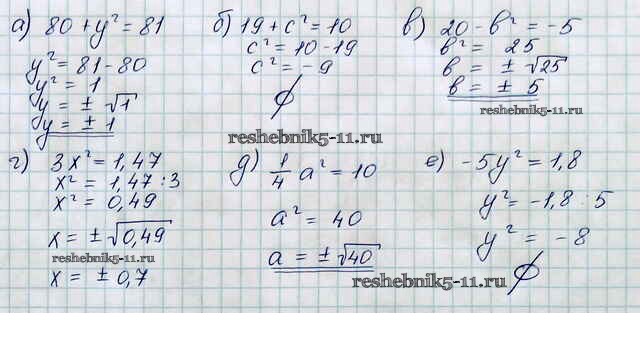 а) 80 + y² = 81
y² = 81 - 80
y² = 1
y = ± √1
y = ± 1
б) 19 + c² = 10
c² = 10 - 19
c² = - 9
∅
в) 20 - b² = - 5
b² = 25
b = ± √25
b = ± 5
reshebnik5-11.ru
reshebnik5-11.ru
г) 3x² = 1,47
x² = 1,47 : 3
x² = 0,49
x = ± √0,49
reshebnik5-11.ru
x = ± 0,7
д) 1/4 a² = 10
a² = 40
a = ± √40
е) - 5y² = 1,8
y² = - 1,8 : 5
y² = - 8
∅
reshebnik5-11.ru